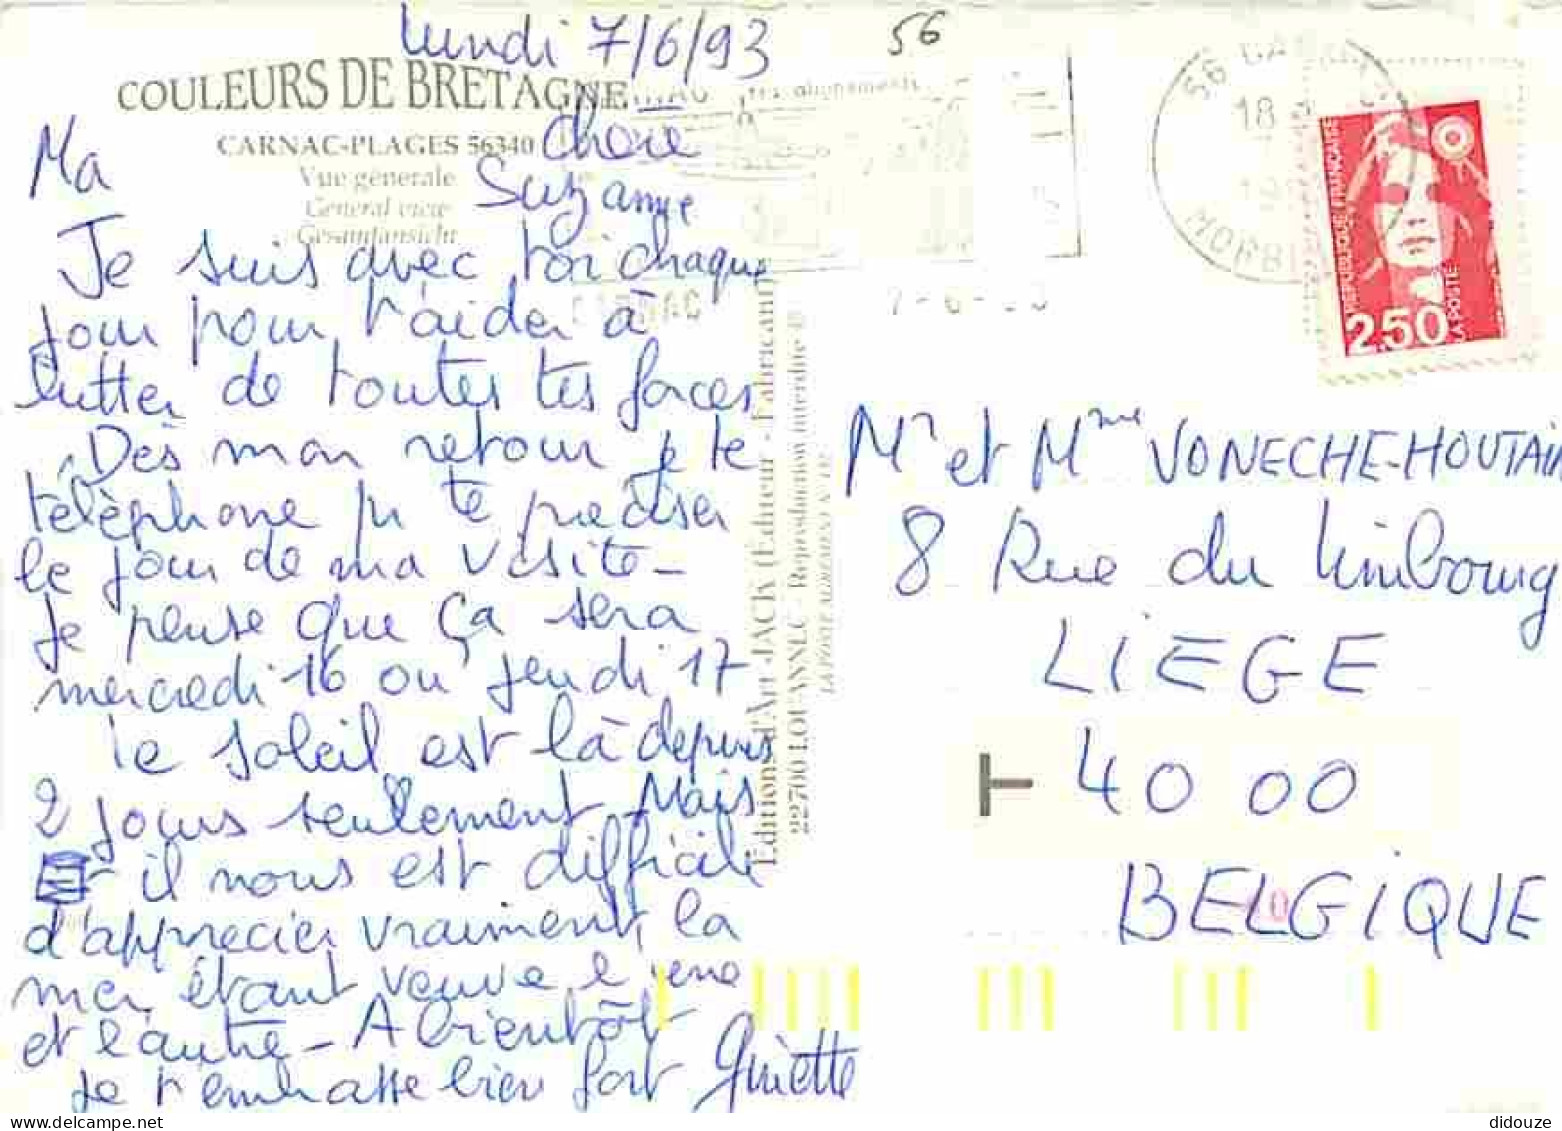 lundi 7/6/93
56
COULEURS DE BRETAGNE
CARNAC-PLAGES 56340
Vue générale
General view
Gesamtansicht
Ma Chère
Suzanne
Je suis avec toi chaque
jour pour t'aider à
lutter de toutes tes forces
Dès mon retour je te
téléphone pr te préciser
le jour de ma visite -
Je pense que ça sera
mercredi 16 ou jeudi 17
le soleil est là depuis
2 jours seulement. Mais
il nous est difficile
d'apprécier vraiment, la
mer, étant veuve l'une
et l'autre - A bientôt
Je t'embrasse bien fort Guiette
Editions d'Art JACK (Editeur - Fabricant)
22700 LOUANNEC - Reproduction interdite
CARNAC
7-6-
56 CA
18
MORB
REPUBLIQUE FRANÇAISE
2,50
LA POSTE
Mr et Mme VONECHE-HOUTAIN
8 Rue du Limbourg
LIEGE
T 40 00
BELGIQUE
didouze